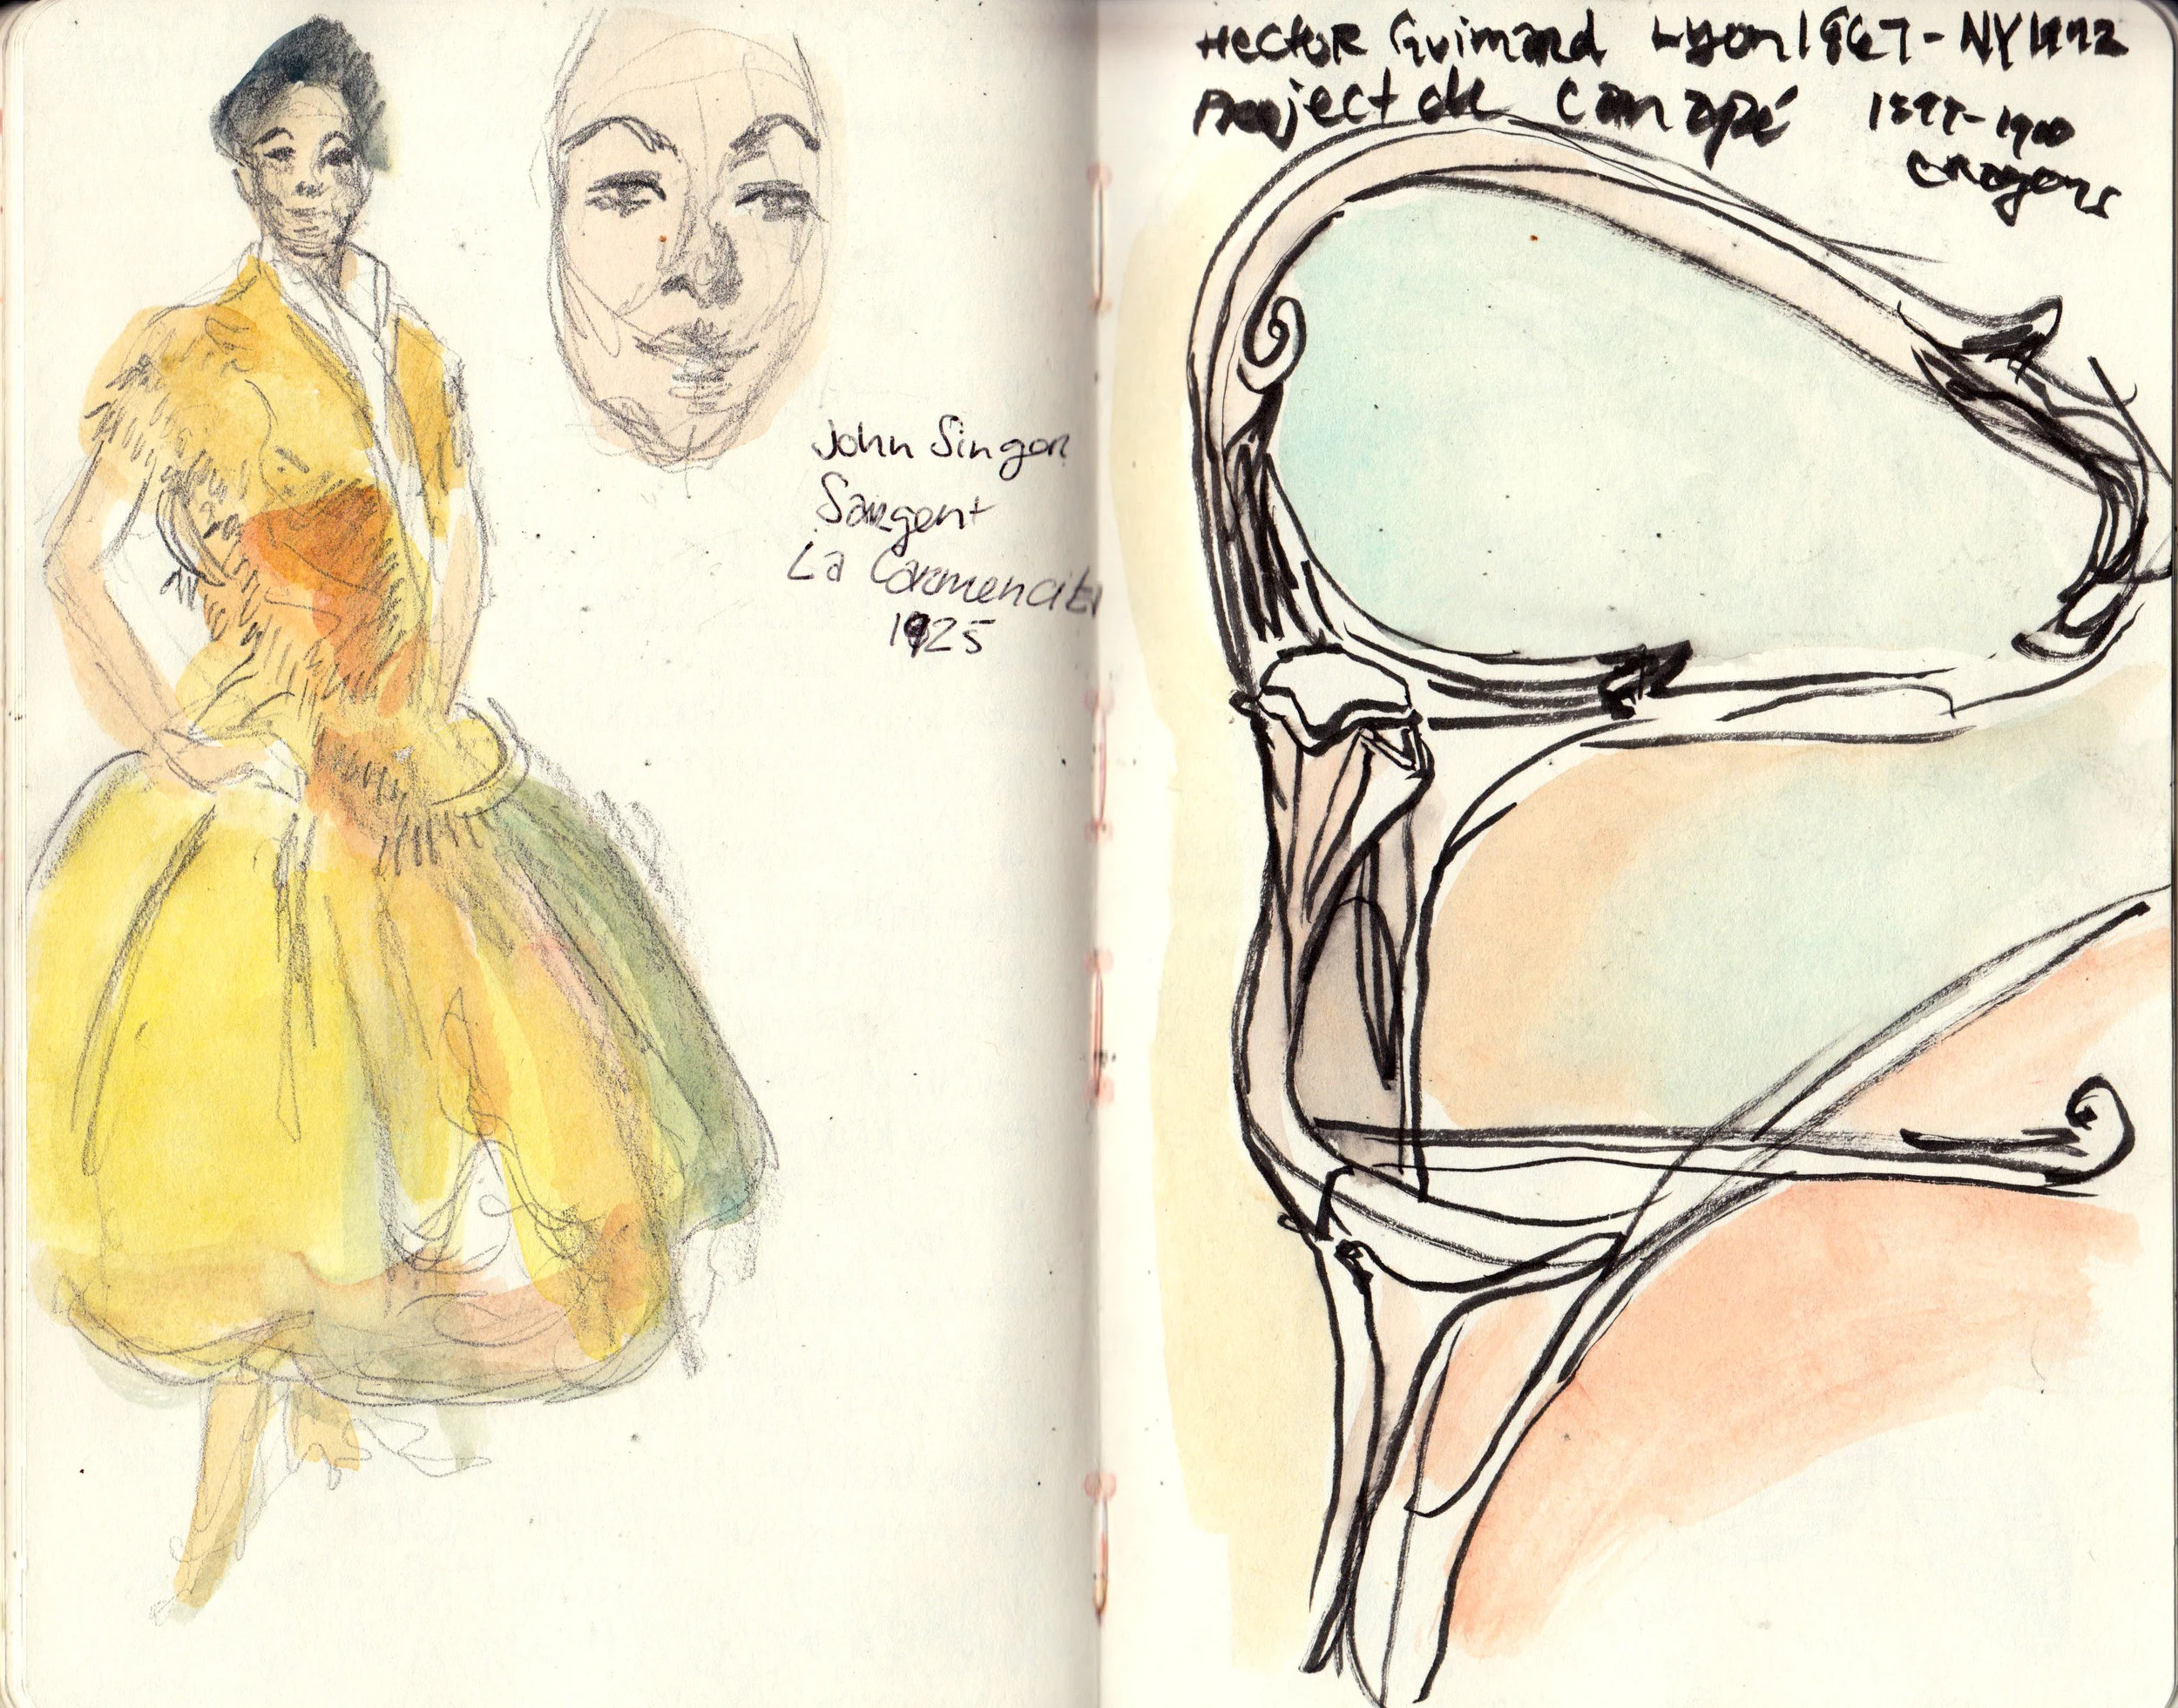 John Singer
Sargent
La Carmencita
1925
Hector Guimard Lyon 1867 - NY 1942
Project de Canapé 1897-1900
crayons